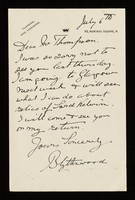 July 6th
Dear Mr Thompson
I was so sorry not to
see you last Thursday.
I am going to Glasgow
next week & will see
what I can do about
relics of Lord Kelvin.
I will come & see you
on my return
Yours Sincerely
Blythswood